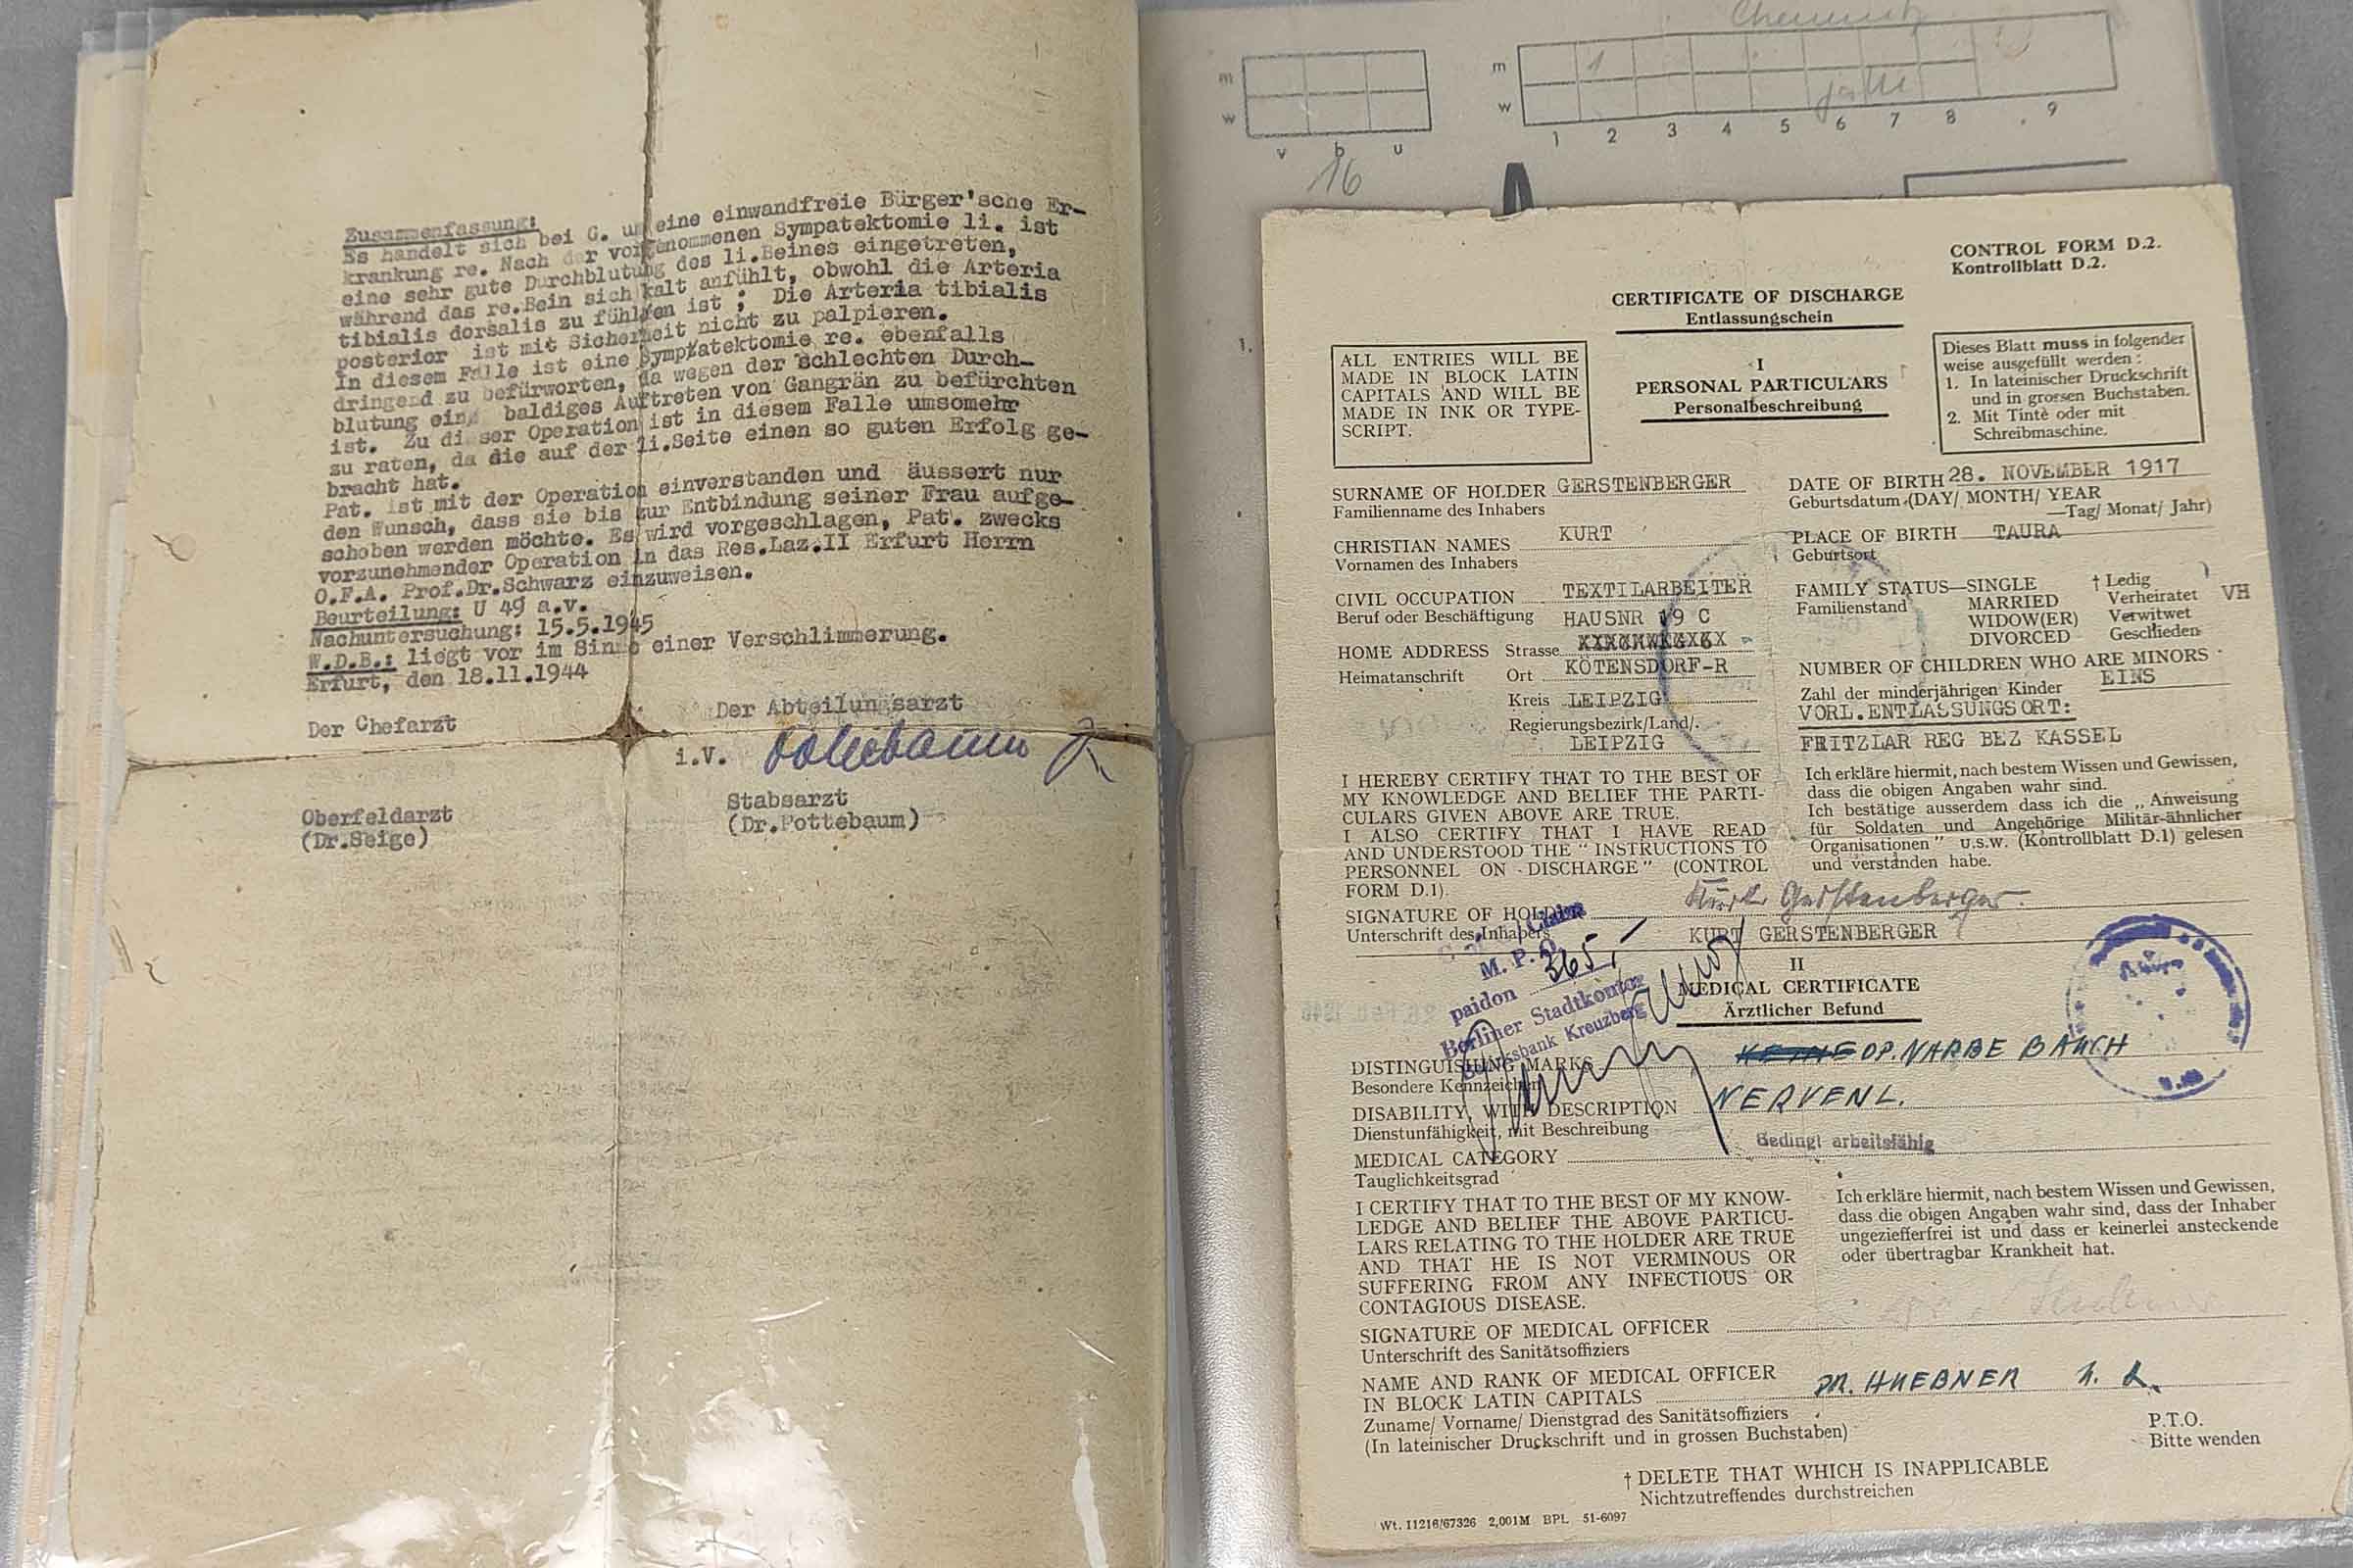 Zusammenfassung:
Es handelt sich bei G. um eine einwandfreie Bürger'sche Er-
krankung re. Nach der vorgenommenen Sympatektomie li. ist
eine sehr gute Durchblutung des li.Beines eingetreten,
während das re.Bein sich kalt anfühlt, obwohl die Arteria
tibialis dorsalis zu fühlen ist ; Die Arteria tibialis
posterior ist mit Sicherheit nicht zu palpieren.
In diesem Falle ist eine Sympatektomie re. ebenfalls
dringend zu befürworten, da wegen der schlechten Durch-
blutung ein baldiges Auftreten von Gangrän zu befürchten
ist. Zu dieser Operation ist in diesem Falle umsomehr
zu raten, da die auf der li.Seite einen so guten Erfolg ge-
bracht hat.
Pat. ist mit der Operation einverstanden und äussert nur
den Wunsch, dass sie bis zur Entbindung seiner Frau aufge-
schoben werden möchte. Es wird vorgeschlagen, Pat. zwecks
vorzunehmender Operation in das Res.Laz.II Erfurt Herrn
O.F.A. Prof.Dr.Schwarz einzuweisen.
Beurteilung: U 49 a.v.
Nachuntersuchung: 15.5.1945
W.D.B.: liegt vor im Sinne einer Verschlimmerung.
Erfurt, den 18.11.1944
Der Chefarzt
Der Abteilungsarzt
i.V.
Oberfeldarzt
(Dr.Seige)
Stabsarzt
(Dr.Pottebaum)
Chemnitz
m
w
v b u
16
m
w
1
1 2 3 4 5 6 7 8 9
1.
CONTROL FORM D.2.
Kontrollblatt D.2.
CERTIFICATE OF DISCHARGE
Entlassungschein
ALL ENTRIES WILL BE
MADE IN BLOCK LATIN
CAPITALS AND WILL BE
MADE IN INK OR TYPE-
SCRIPT.
I
PERSONAL PARTICULARS
Personalbeschreibung
Dieses Blatt muss in folgender
weise ausgefüllt werden :
1. In lateinischer Druckschrift
und in grossen Buchstaben.
2. Mit Tinte oder mit
Schreibmaschine.
SURNAME OF HOLDER GERSTENBERGER
Familienname des Inhabers
DATE OF BIRTH 28. NOVEMBER 1917
Geburtsdatum (DAY/ MONTH/ YEAR
—Tag/ Monat/ Jahr)
CHRISTIAN NAMES KURT
Vornamen des Inhabers
PLACE OF BIRTH TAURA
Geburtsort
CIVIL OCCUPATION TEXTILARBEITER
Beruf oder Beschäftigung HAUSNR 19 C
FAMILY STATUS—SINGLE † Ledig
Familienstand MARRIED Verheiratet VH
WIDOW(ER) Verwitwet
DIVORCED Geschieden
HOME ADDRESS Strasse
Heimatanschrift Ort KÖTENSDORF-R
Kreis LEIPZIG
Regierungsbezirk/Land/.
LEIPZIG
NUMBER OF CHILDREN WHO ARE MINORS
Zahl der minderjährigen Kinder EINS
VORL.ENTLASSUNGSORT:
FRITZLAR REG BEZ KASSEL
I HEREBY CERTIFY THAT TO THE BEST OF
MY KNOWLEDGE AND BELIEF THE PARTI-
CULARS GIVEN ABOVE ARE TRUE.
I ALSO CERTIFY THAT I HAVE READ
AND UNDERSTOOD THE " INSTRUCTIONS TO
PERSONNEL ON DISCHARGE " (CONTROL
FORM D.1).
Ich erkläre hiermit, nach bestem Wissen und Gewissen,
dass die obigen Angaben wahr sind.
Ich bestätige ausserdem dass ich die „ Anweisung
für Soldaten und Angehörige Militär-ähnlicher
Organisationen " u.s.w. (Kontrollblatt D.1) gelesen
und verstanden habe.
SIGNATURE OF HOLDER Kurt Gerstenberger.
Unterschrift des Inhabers KURT GERSTENBERGER
Claim
M. P. O.
paidon 365,-
Berliner Stadtkontor
Bezirksbank Kreuzberg
II
MEDICAL CERTIFICATE
Ärztlicher Befund
DISTINGUISHING MARKS KEINE OP. NARBE BAUCH
Besondere Kennzeichen
DISABILITY, WITH DESCRIPTION NERVENL.
Dienstunfähigkeit, mit Beschreibung
MEDICAL CATEGORY Bedingt arbeitsfähig
Tauglichkeitsgrad
I CERTIFY THAT TO THE BEST OF MY KNOW-
LEDGE AND BELIEF THE ABOVE PARTICU-
LARS RELATING TO THE HOLDER ARE TRUE
AND THAT HE IS NOT VERMINOUS OR
SUFFERING FROM ANY INFECTIOUS OR
CONTAGIOUS DISEASE.
Ich erkläre hiermit, nach bestem Wissen und Gewissen,
dass die obigen Angaben wahr sind, dass der Inhaber
ungeziefferfrei ist und dass er keinerlei ansteckende
oder übertragbar Krankheit hat.
SIGNATURE OF MEDICAL OFFICER
Unterschrift des Sanitätsoffiziers
NAME AND RANK OF MEDICAL OFFICER
IN BLOCK LATIN CAPITALS DR. HUEBNER
Zuname/ Vorname/ Dienstgrad des Sanitätsoffiziers
(In lateinischer Druckschrift und in grossen Buchstaben)
P.T.O.
Bitte wenden
† DELETE THAT WHICH IS INAPPLICABLE
Nichtzutreffendes durchstreichen
Wt. 11216/67326 2,001M BPL 51-6097